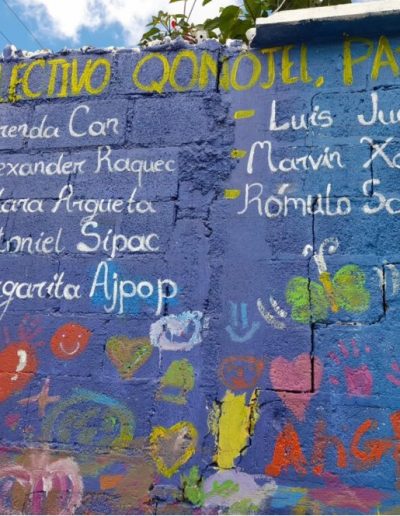 LECTIVO QOMOJEL, PA
renda Can
exander Raquec
ara Argueta
toniel Sipac
garita Ajpop
- Luis Ju
- Marvin Xo
- Rómulo Sa
ANGI